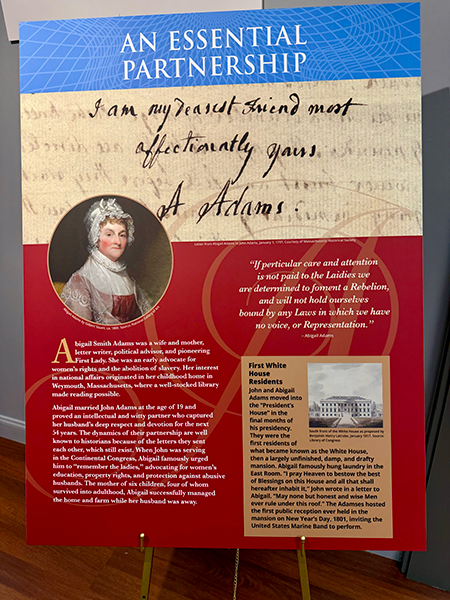 AN ESSENTIAL
PARTNERSHIP
I am my dearest Friend most
affectionatly yours
A Adams.
Letter from Abigail Adams to John Adams, January 1, 1797, Courtesy of Massachusetts Historical Society
Abigail Adams by Gilbert Stuart, ca. 1800.
"If perticular care and attention
is not paid to the Laidies we
are determined to foment a Rebelion,
and will not hold ourselves
bound by any Laws in which we have
no voice, or Representation."
–Abigail Adams
Abigail Smith Adams was a wife and mother,
letter writer, political advisor, and pioneering
First Lady. She was an early advocate for
women's rights and the abolition of slavery. Her interest
in national affairs originated in her childhood home in
Weymouth, Massachusetts, where a well-stocked library
made reading possible.
Abigail married John Adams at the age of 19 and
proved an intellectual and witty partner who captured
her husband's deep respect and devotion for the next
54 years. The dynamics of their partnership are well
known to historians because of the letters they sent
each other, which still exist. When John was serving
in the Continental Congress, Abigail famously urged
him to "remember the ladies," advocating for women's
education, property rights, and protection against abusive
husbands. The mother of six children, four of whom
survived into adulthood, Abigail successfully managed
the home and farm while her husband was away.
First White
House
Residents
John and Abigail
Adams moved into
the "President's
House" in the
final months of
his presidency.
They were the
first residents of
what became known as the White House,
then a largely unfinished, damp, and drafty
mansion. Abigail famously hung laundry in the
East Room. "I pray Heaven to bestow the best
of Blessings on this House and all that shall
hereafter inhabit it," John wrote in a letter to
Abigail. "May none but honest and wise Men
ever rule under this roof." The Adamses hosted
the first public reception ever held in the
mansion on New Year's Day, 1801, inviting the
United States Marine Band to perform.
South front of the White House as proposed by
Benjamin Henry Latrobe, January 1817. Source
Library of Congress